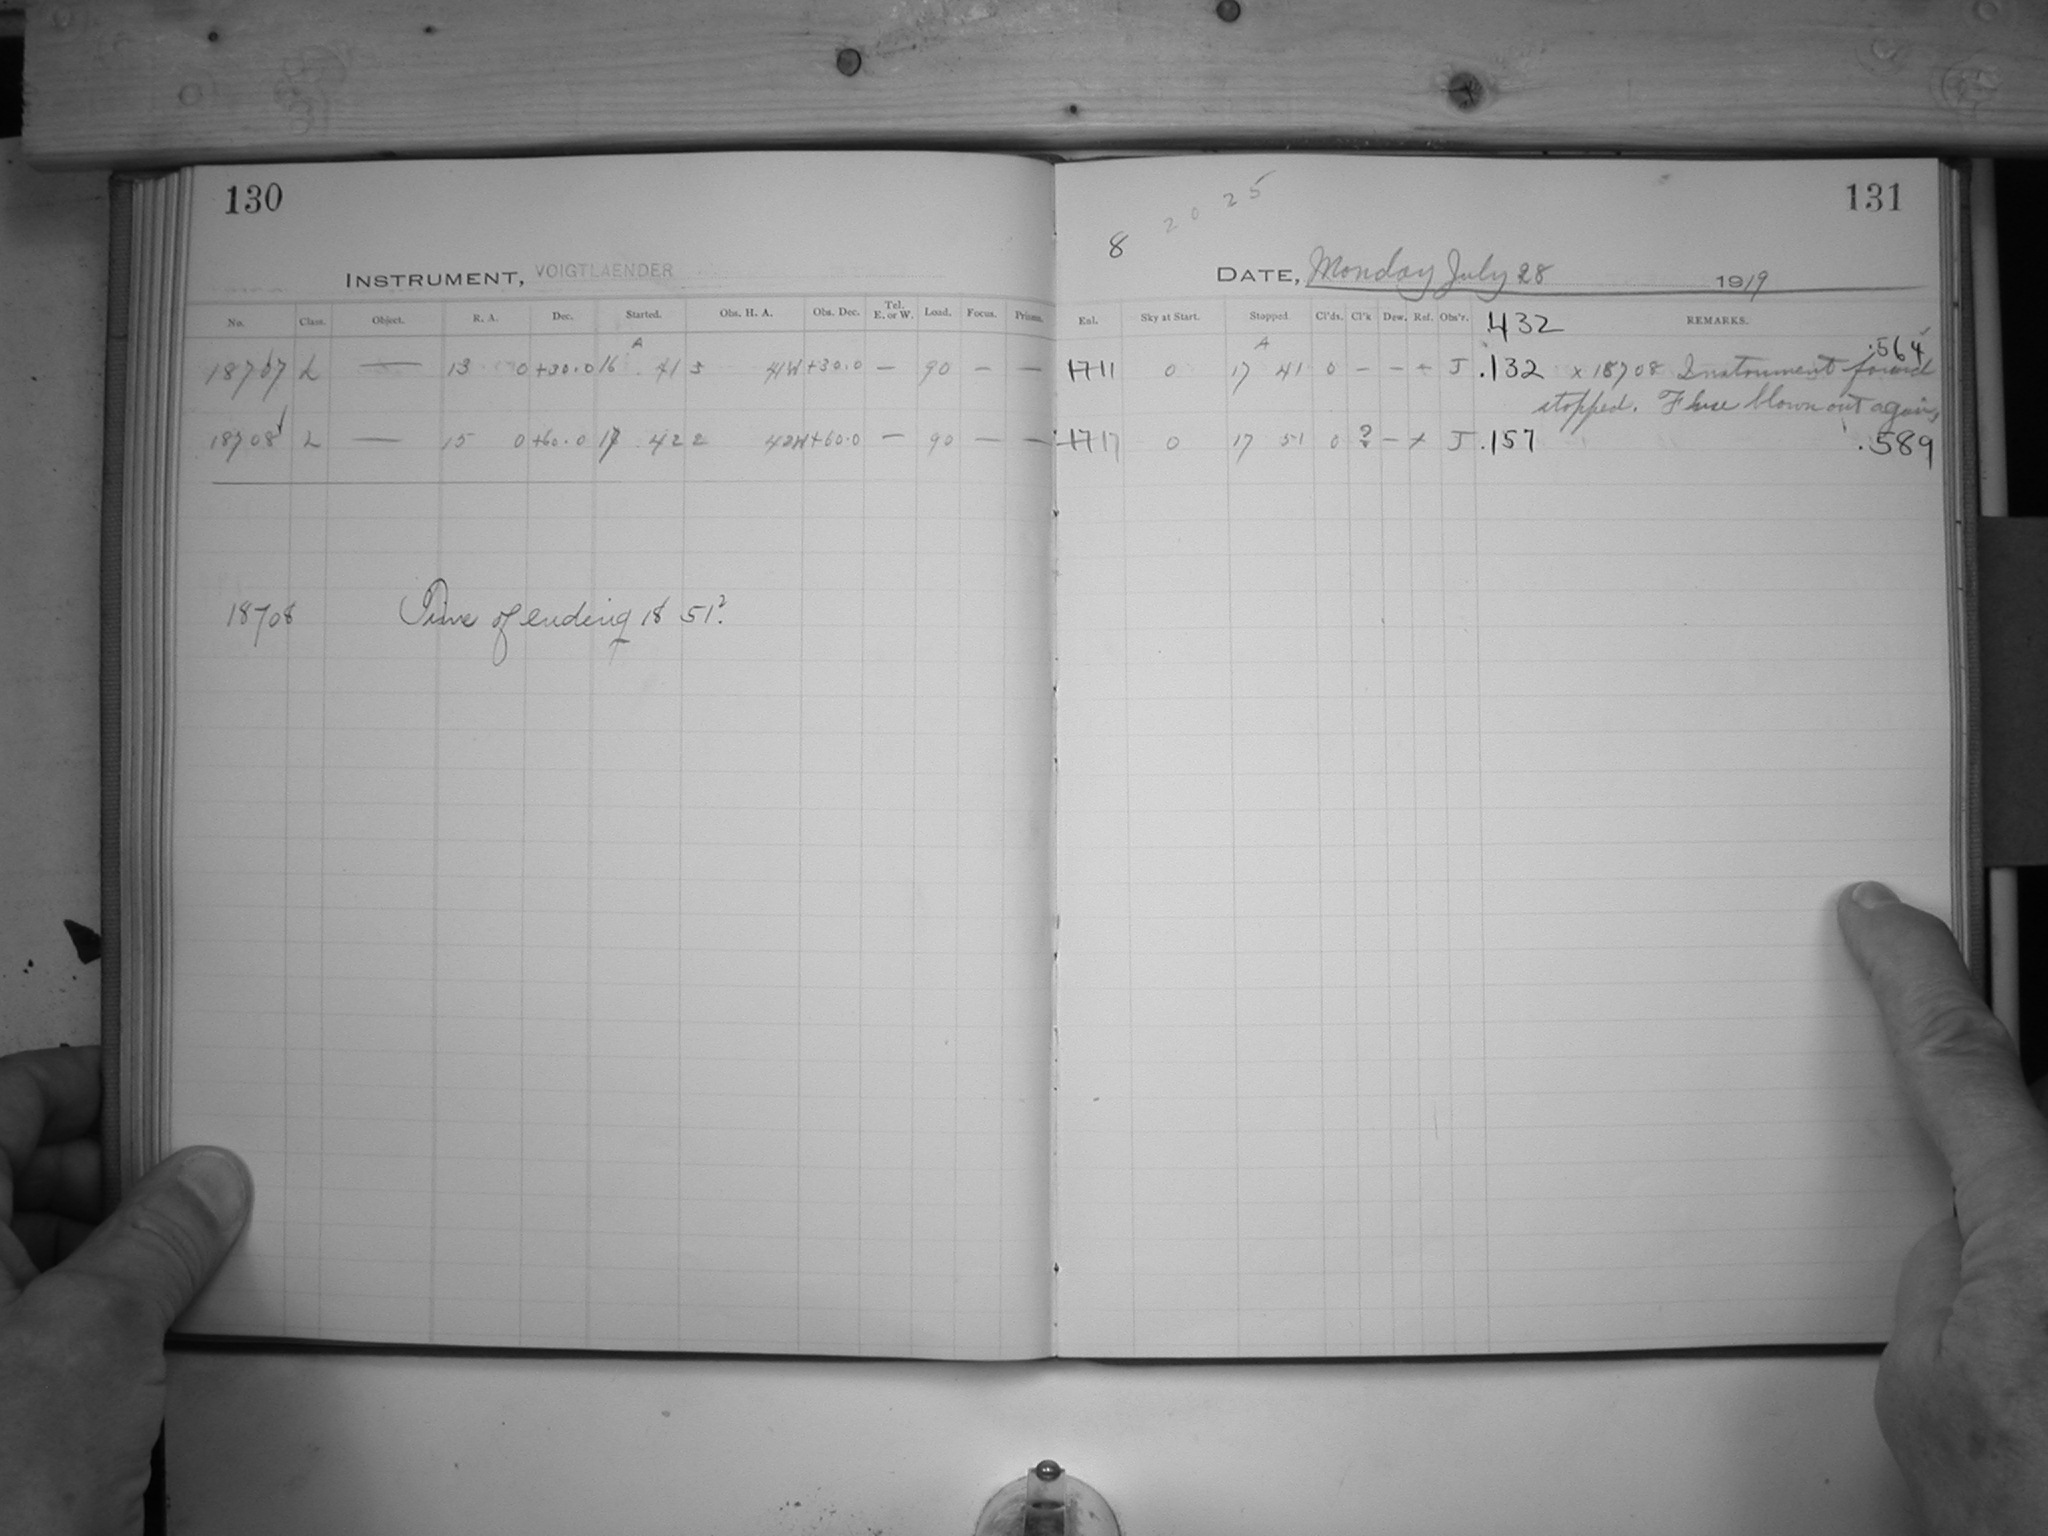 130
INSTRUMENT, VOIGTLAENDER
No. Class. Object. R. A. Dec. Started. Obs. H. A. Obs. Dec. Tel. E. or W. Load. Focus. Prisms.
A
18707 L — 13 0 +30.0 16 41 3 41W +30.0 — 90 — —
18708 L — 15 0 +60.0 17 42 2 42W +60.0 — 90 — —
18708 Time of ending 18 51?
131
2 0 2 5
8
DATE, Monday July 28 1919
Enl. Sky at Start. Stopped. Cl'ds. Cl'k Dew. Ref. Obs'r. .432 REMARKS.
A .564
1711 0 17 41 0 — — + J .132 x 18708 Instrument found
stopped. Fuse blown out again,
1717 0 17 51 0 ? — + J .157 .589